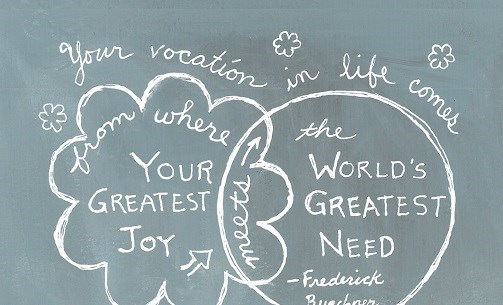 Your vocation in life comes
from where
YOUR
GREATEST
JOY
meets
the
WORLD'S
GREATEST
NEED
-Frederick
Buechner